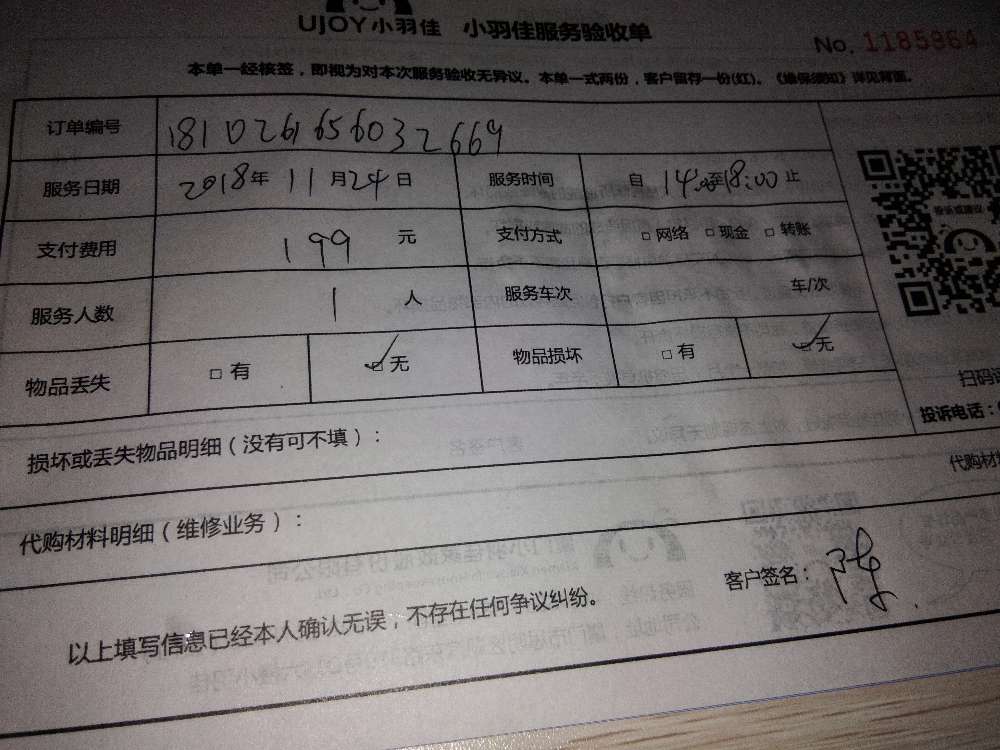 UJOY小羽佳 小羽佳服务验收单
No. 1185864
本单一经核签，即视为对本次服务验收无异议。本单一式两份，客户留存一份(红)。《维保须知》详见背面。
订单编号 1810261656032669
服务日期 2018年 11 月 24 日 服务时间 自 14:00至18:00止
支付费用 199 元 支付方式 □ 网络 □ 现金 □ 转账
服务人数 1 人 服务车次 车/次
物品丢失 □ 有 ☑ 无 物品损坏 □ 有 ☑ 无
投诉或建议
扫码
投诉电话：
损坏或丢失物品明细（没有可不填）：
代购材
代购材料明细（维修业务）：
客户签名：
以上填写信息已经本人确认无误，不存在任何争议纠纷。